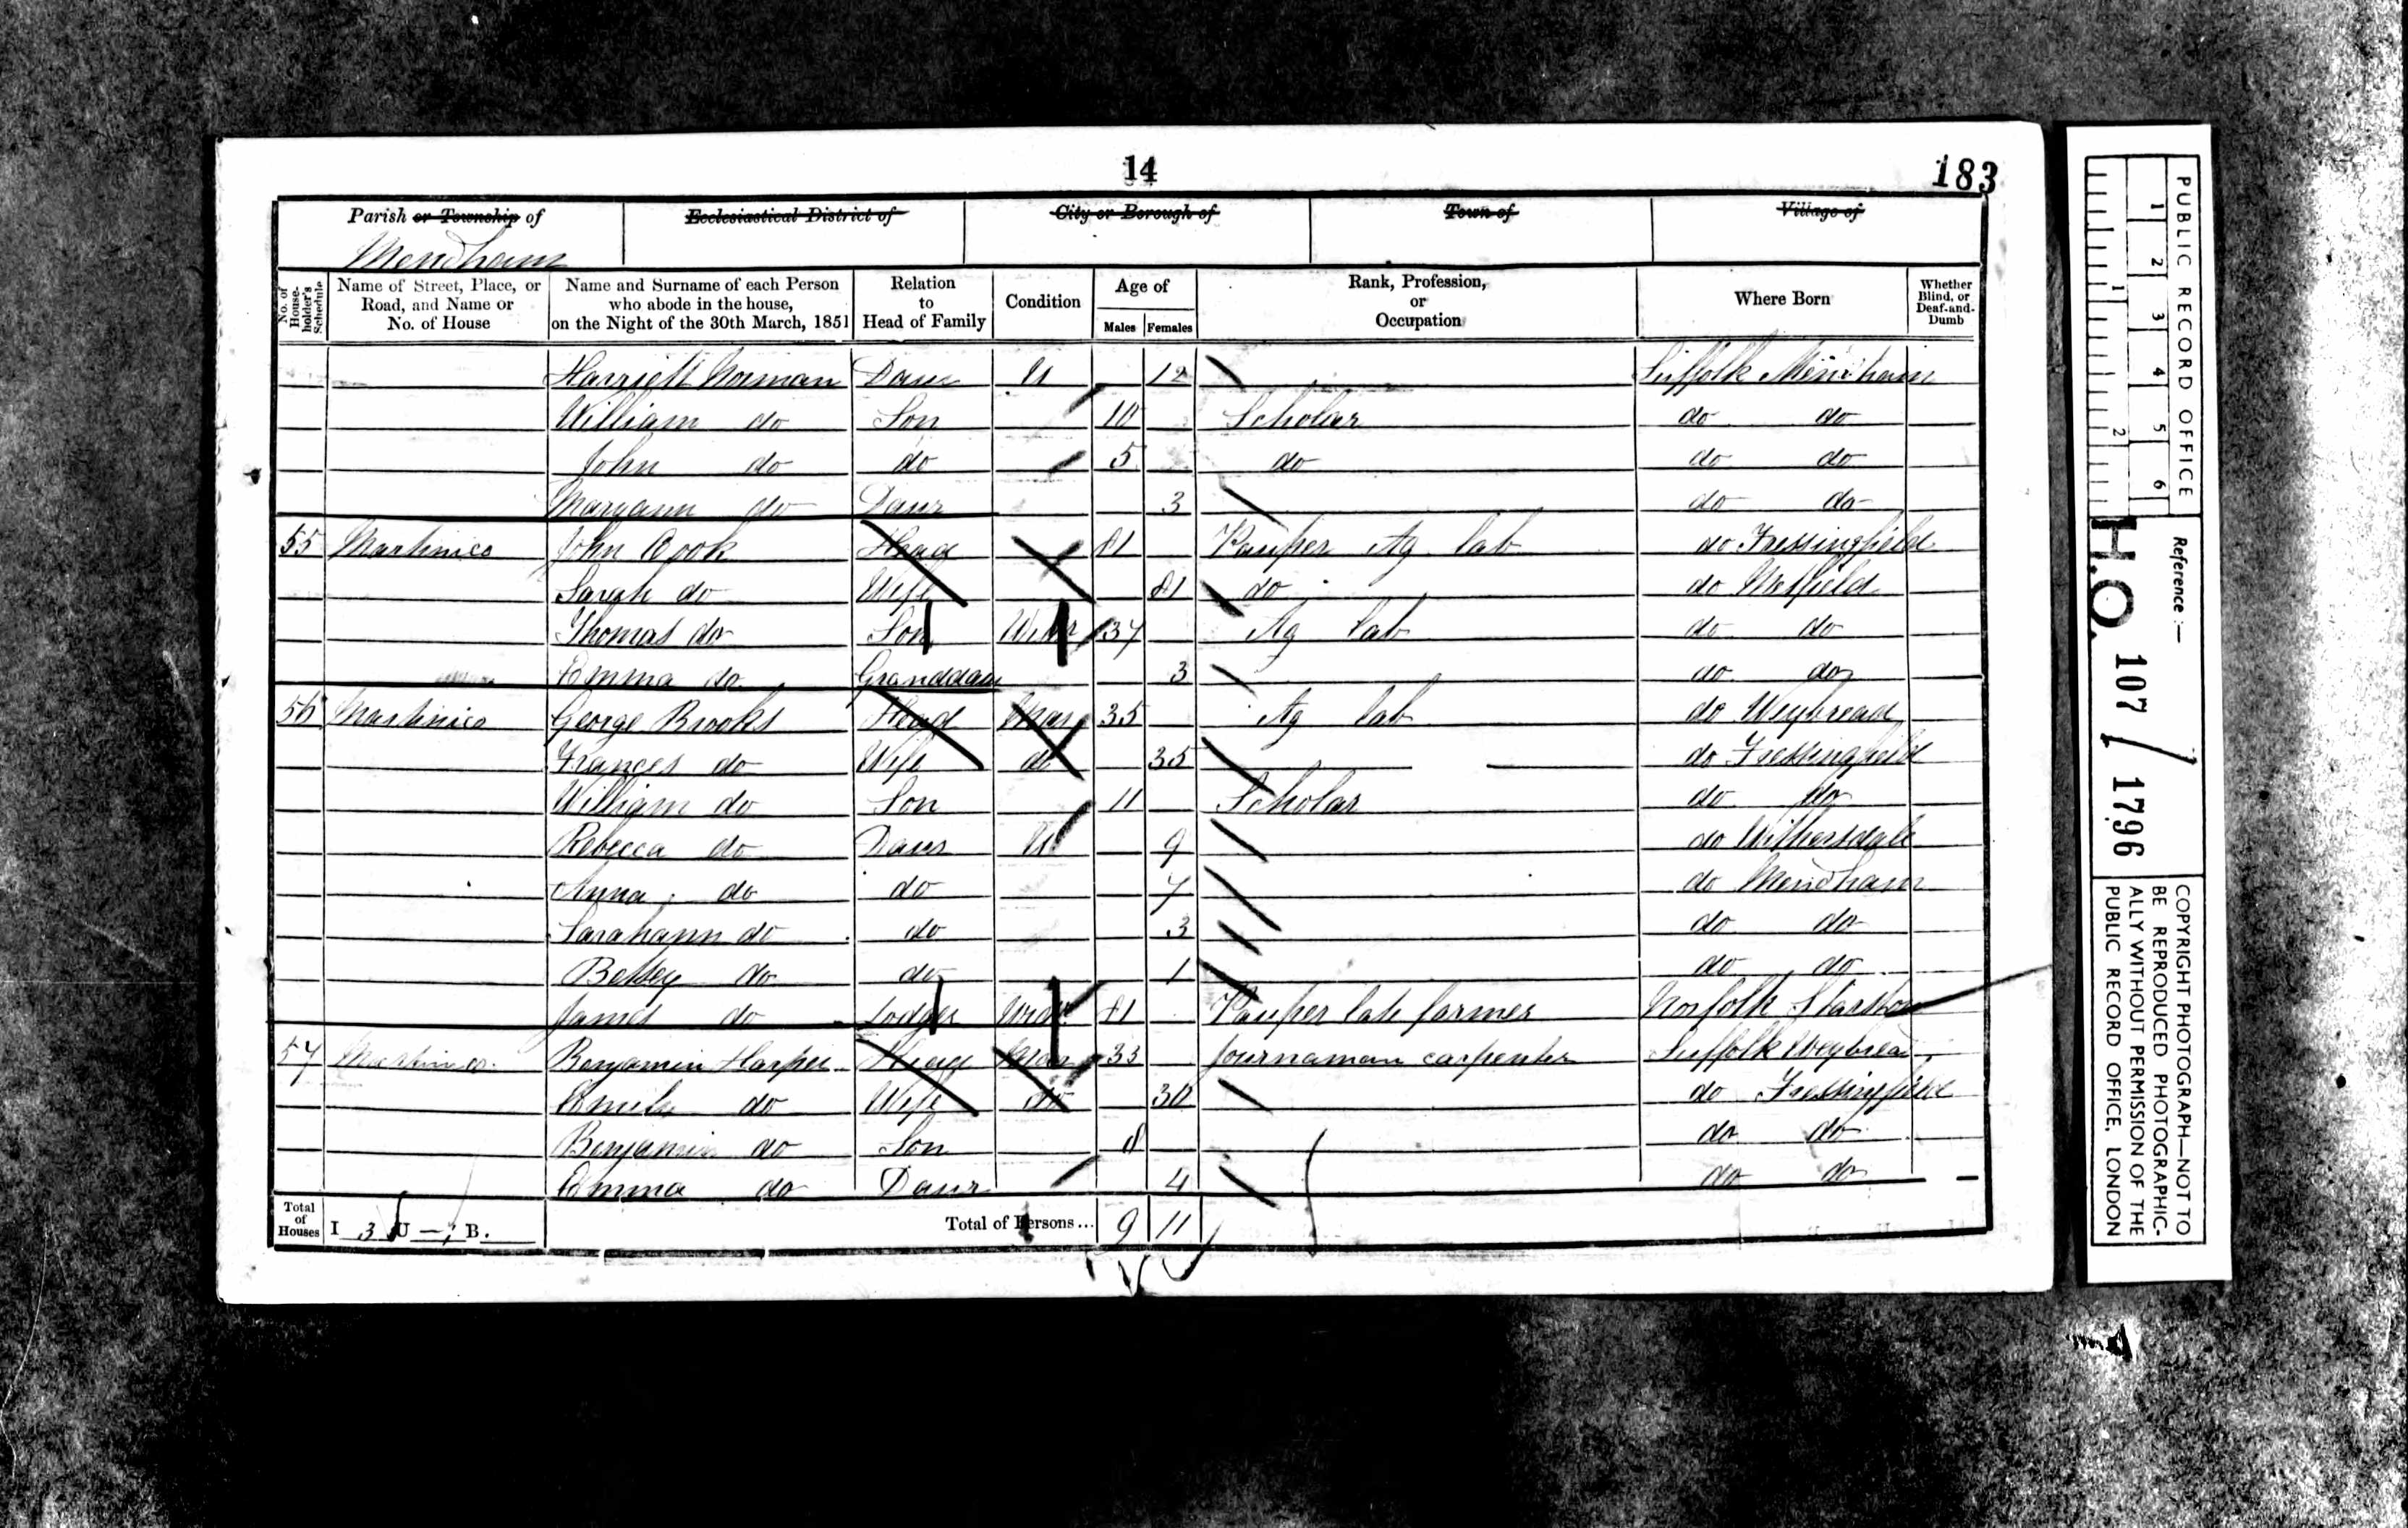 14
183
Parish or Township of
Ecclesiastical District of
City or Borough of
Town of
Village of
Mendham
No. of House-holder's Schedule
Name of Street, Place, or Road, and Name or No. of House
Name and Surname of each Person who abode in the house, on the Night of the 30th March, 1851
Relation to Head of Family
Condition
Age of
Males Females
Rank, Profession, or Occupation
Where Born
Whether Blind, or Deaf-and-Dumb
Harriett Norman Daur U 12 Suffolk Mendham
William do Son 10 Scholar do do
John do do 5 do do do
Maryann do Daur 3 do do
55 Martinico John Cook Head 81 Pauper Ag lab do Fressingfield
Sarah do Wife 81 do do Metfield
Thomas do Son Widr 37 Ag lab do do
Emma do Granddaur 3 do do
56 Martinico George Brooks Head Mar 35 Ag lab do Weybread
Frances do Wife do 35 do Fressingfield
William do Son 11 Scholar do do
Rebecca do Daur U 9 do Withersdale
Anna do do 7 do Mendham
Sarahann do do 3 do do
Betsey do do 1 do do
James do Lodger Widr 81 Pauper late farmer Norfolk Starston
57 Martinico Benjamin Harper Head Mar 33 Journaman carpenter Suffolk Weybread
do Wife do 30 do Fressingfield
Benjamin do Son 8 do do
Emma do Daur 4 do do
Total of Houses I 3 U — B.
Total of Persons... 9 11
PUBLIC RECORD OFFICE
1 2 3 4 5 6
1 2
Reference :—
H.O. 107 / 1796
COPYRIGHT PHOTOGRAPH—NOT TO
BE REPRODUCED PHOTOGRAPHIC-
ALLY WITHOUT PERMISSION OF THE
PUBLIC RECORD OFFICE, LONDON